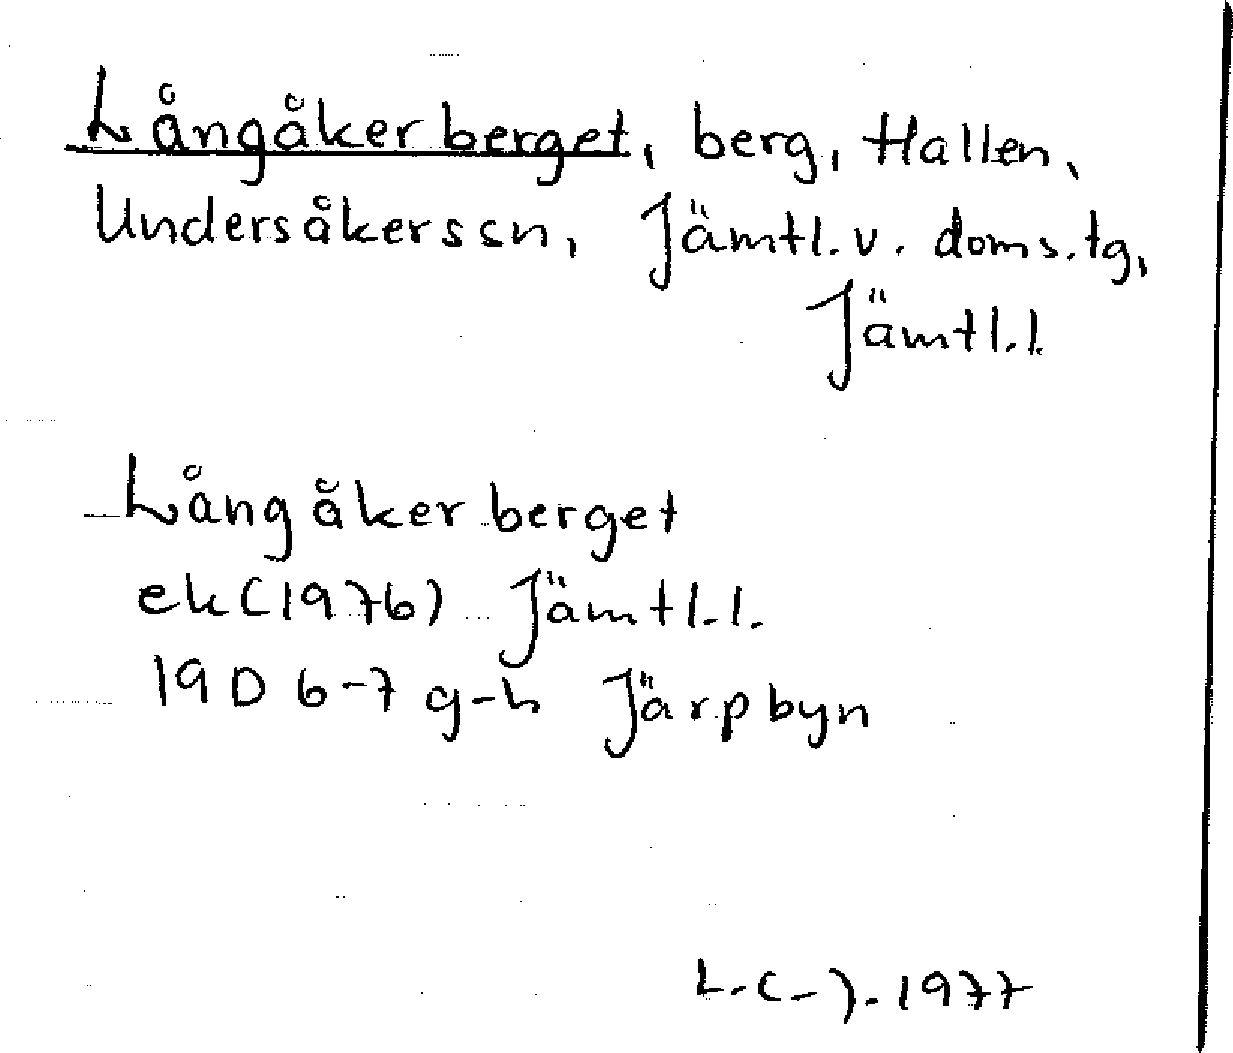 Långåkerberget, berg, Hallen,
Undersåkers sn, Jämtl.v. doms.tg,
Jämtl.l.
Långåkerberget
ek (1976) Jämtl.l.
19D 6-7 g-h Järpbyn
L-C-J. 1977